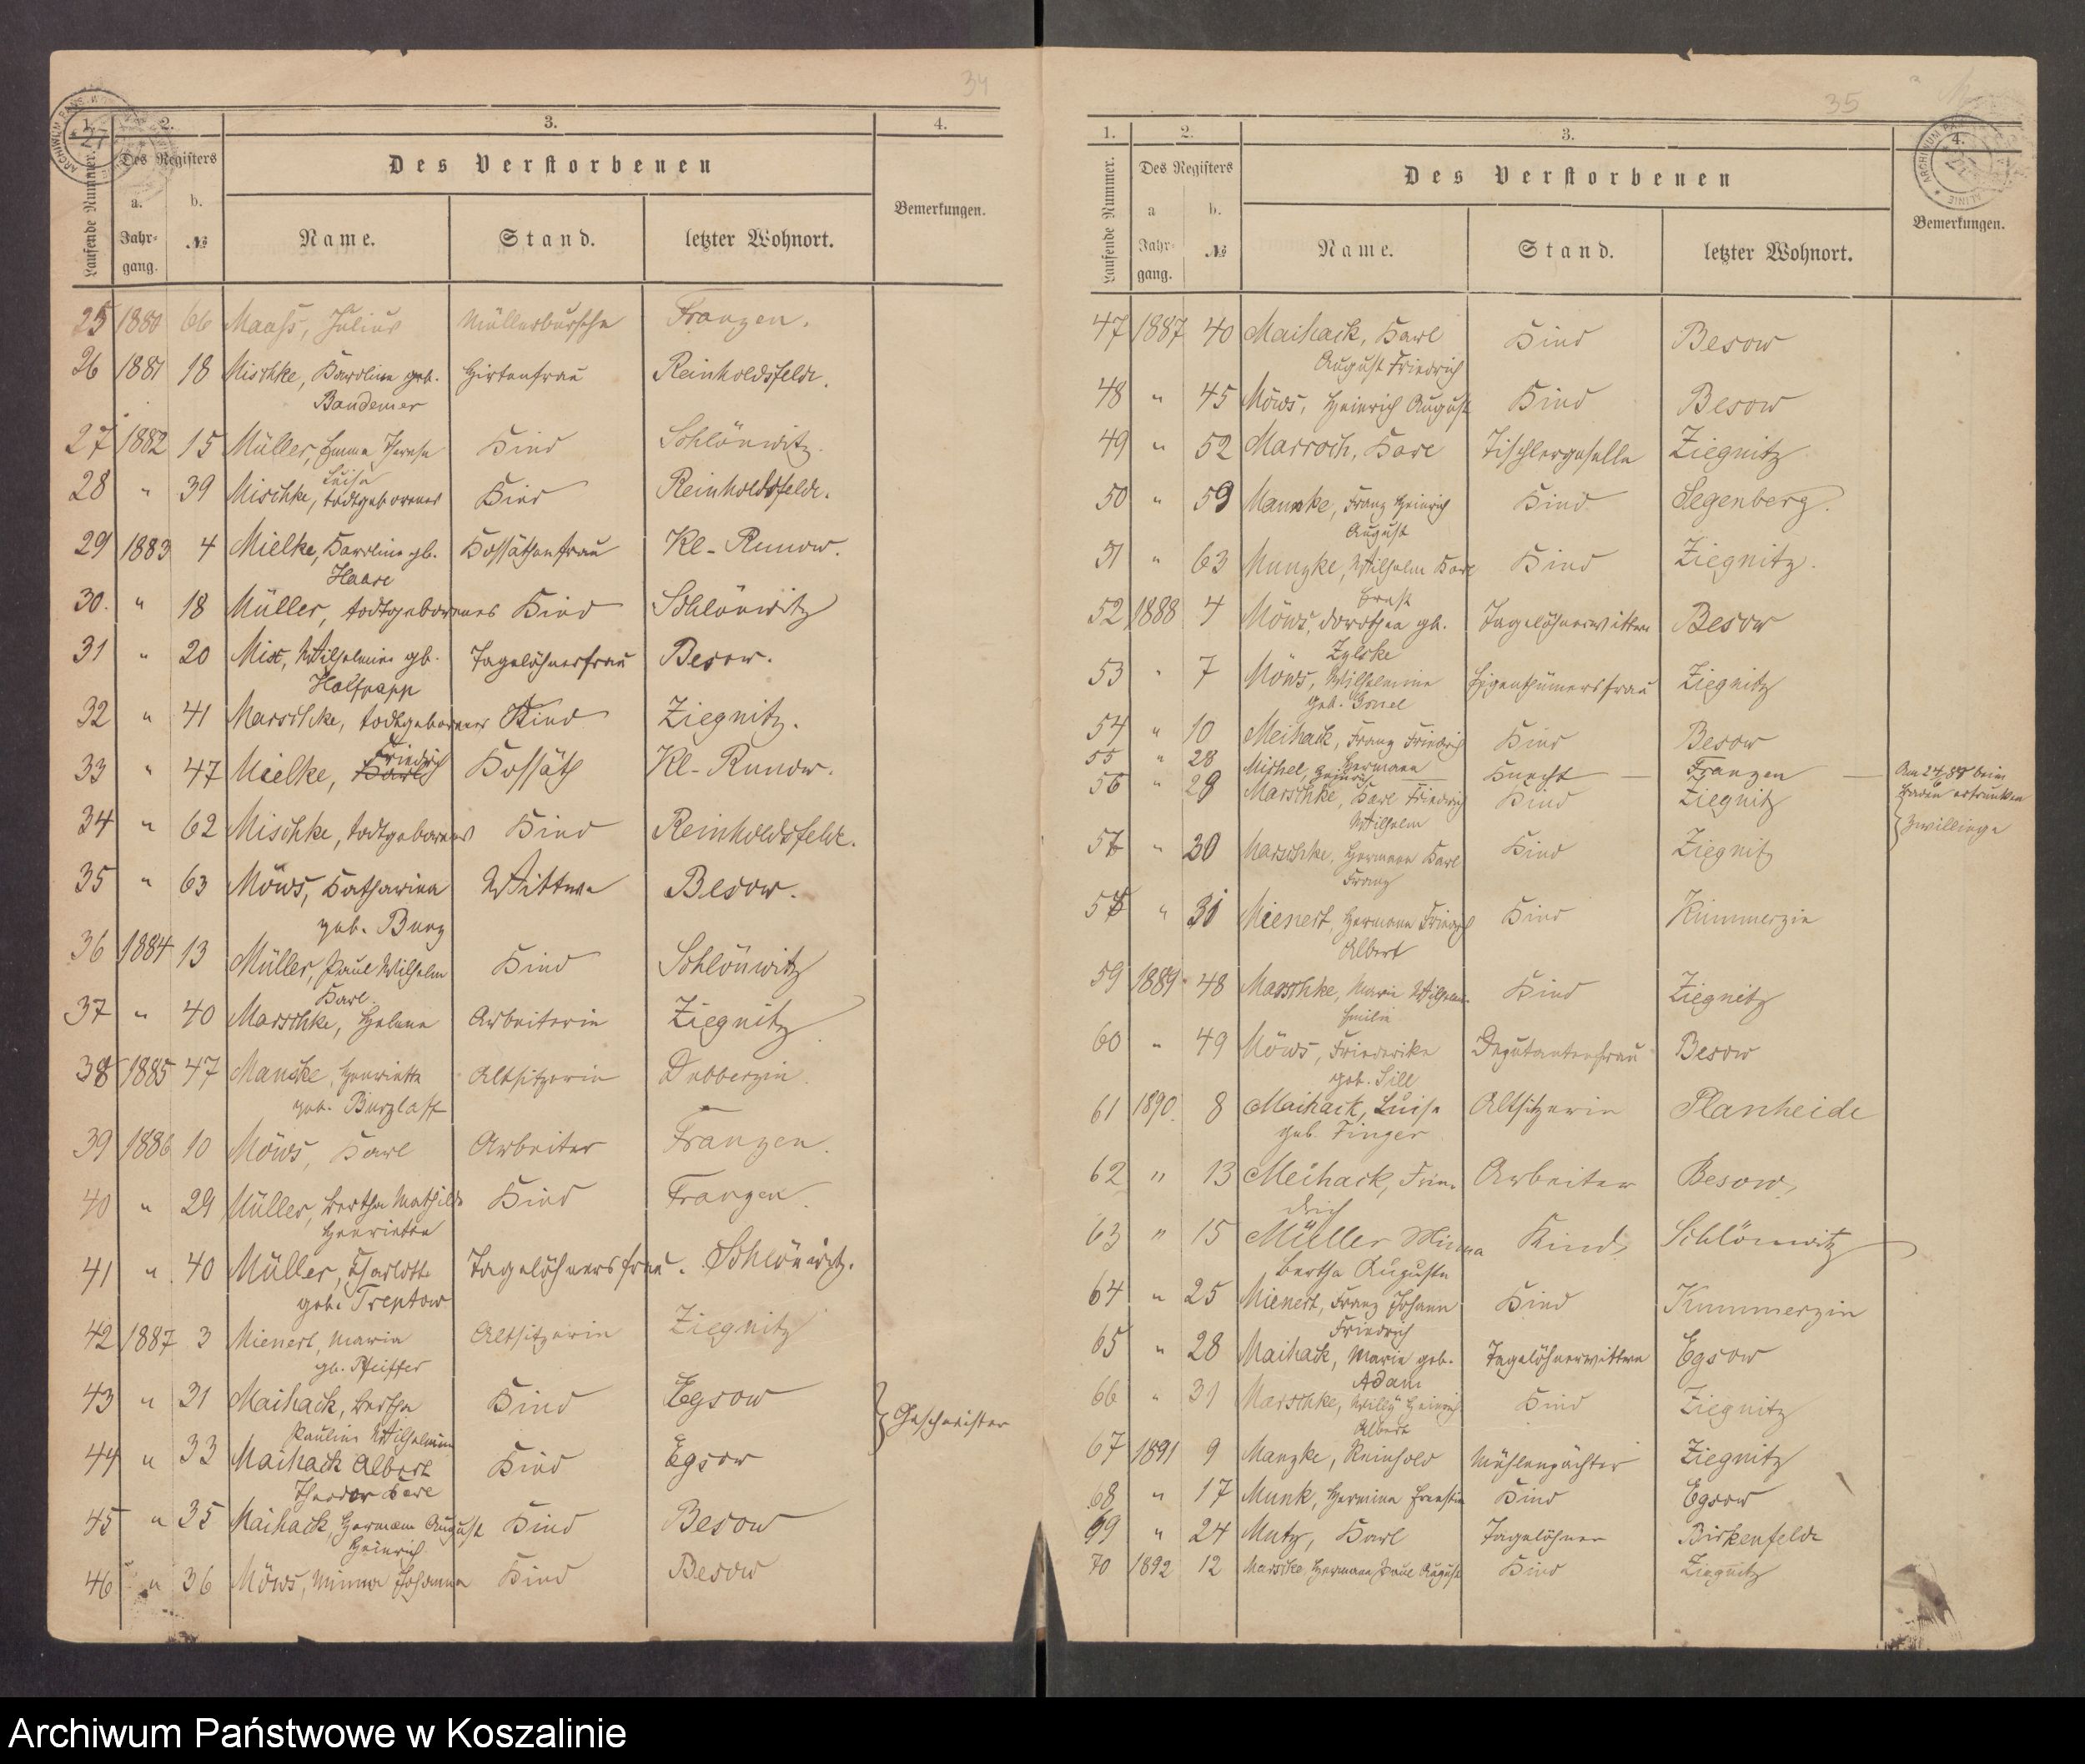 34
1. 2. 3. 4.
Laufende Nummer.
Des Registers
Des Verstorbenen
a. b.
Jahrgang. №
Name. Stand. letzter Wohnort.
Bemerkungen.
25 1880 66 Maaß, Julius Müllerbursche Franzen.
26 1881 18 Mischke, Karoline geb. Hirtenfrau Reinholdsfelde.
Bandemer
27 1882 15 Müller, Emma Therese Kind Schlönwitz.
Luise
28 " 39 Mischke, todtgeborenes Kind Reinholdsfelde.
29 1883 4 Mielke, Karoline gb. Kossäthenfrau Kl-Runow.
Haase
30. " 18 Müller, todtgeborenes Kind Schlönwitz
31 " 20 Mix, Wilhelmine gb. Tagelöhnerfrau Besow.
Halfpapp
32 " 41 Marschke, todtgeborenes Kind Ziegnitz.
Friedrich
33 " 47 Mielke, Karl Kossäth Kl-Runow.
34 " 62 Mischke, todtgeborenes Kind Reinholdsfelde.
35 " 63 Möws, Katharina Wittwe Besow.
geb. Bung
36 1884 13 Müller, Paul Wilhelm Kind Schlönwitz
Karl.
37 " 40 Marschke, Helene Arbeiterin Ziegnitz
38 1885 47 Manske, Henriette Altsitzerin Dubberzin.
geb. Burzlaff
39 1886 10 Möws, Karl Arbeiter Franzen.
40 " 29 Müller, Bertha Mathilde Kind Franzen.
Henriette
41 " 40 Müller, Charlotte Tagelöhnersfrau. Schlönwitz.
geb. Treptow
42 1887 3 Mienert, Maria Altsitzerin Ziegnitz
gb. Pfeiffer
43 " 31 Maihack, Bertha Kind Egsow
Pauline Wilhelmine
} Geschwister
44 " 33 Maihack Albert Kind Egsow
Theodor Karl
45 " 35 Maihack, Hermann August Kind Besow
Heinrich
46 " 36 Möws, Minna Johanna Kind Besow
35
1. 2. 3. 4.
Laufende Nummer.
Des Registers
Des Verstorbenen
a b.
Jahrgang. №
Name. Stand. letzter Wohnort.
Bemerkungen.
47 1887 40 Maihack, Karl Kind Besow
August Friedrich
48 " 45 Möws, Heinrich August Kind Besow
49 " 52 Marroch, Karl Tischlergeselle Ziegnitz
50 " 59 Manske, Franz Heinrich Kind Segenberg.
August
51 " 63 Munzke, Wilhelm Karl Kind Ziegnitz.
Ernst
52 1888 4 Möws, Dorothea gb. Tagelöhnerwittwe Besow
Zylske
53 " 7 Möws, Wilhelmine Eigenthümersfrau Ziegnitz
geb.
54 " 10 Meihack, Franz Friedrich Kind Besow
Hermann
55 " 28 Mischel, Heinrich Knecht Franzen Am beim
Baden ertrunken
56 " 29 Marschke, Karl Friedrich Kind Ziegnitz
Wilhelm
} Zwillinge
57 " 30 Marschke, Hermann Karl Kind Ziegnitz
Franz
58 " 31 Mienert, Hermann Friedrich Kind Kummerzin
Albert
59 1889 48 Marschke, Marie Wilhelm. Kind Ziegnitz
Emilie
60 " 49 Möws, Friederike Deputantenfrau Besow
geb. Sill
61 1890. 8 Maihack, Luise Altsitzerin Planheide
geb. Finger
62 " 13 Meihack, Frie- Arbeiter Besow,
drich
63 " 15 Müller Minna Kind, Schlönwitz
Bertha Auguste
64 " 25 Mienert, Franz Johann Kind Kummerzin
Friedrich
65 " 28 Maihack, Marie geb. Tagelöhnerwittwe Egsow
Adam
66 " 31 Marschke, Willy Heinrich Kind Ziegnitz
Albert
67 1891 9 Manzke, Reinhold Mühlenpächter Ziegnitz
68 " 17 Munk, Hermine Ernestine Kind Egsow
69 " 24 Mutz, Karl Tagelöhner Birkenfelde
70 1892 12 Marschke Hermann Paul August Kind Ziegnitz
Archiwum Państwowe w Koszalinie